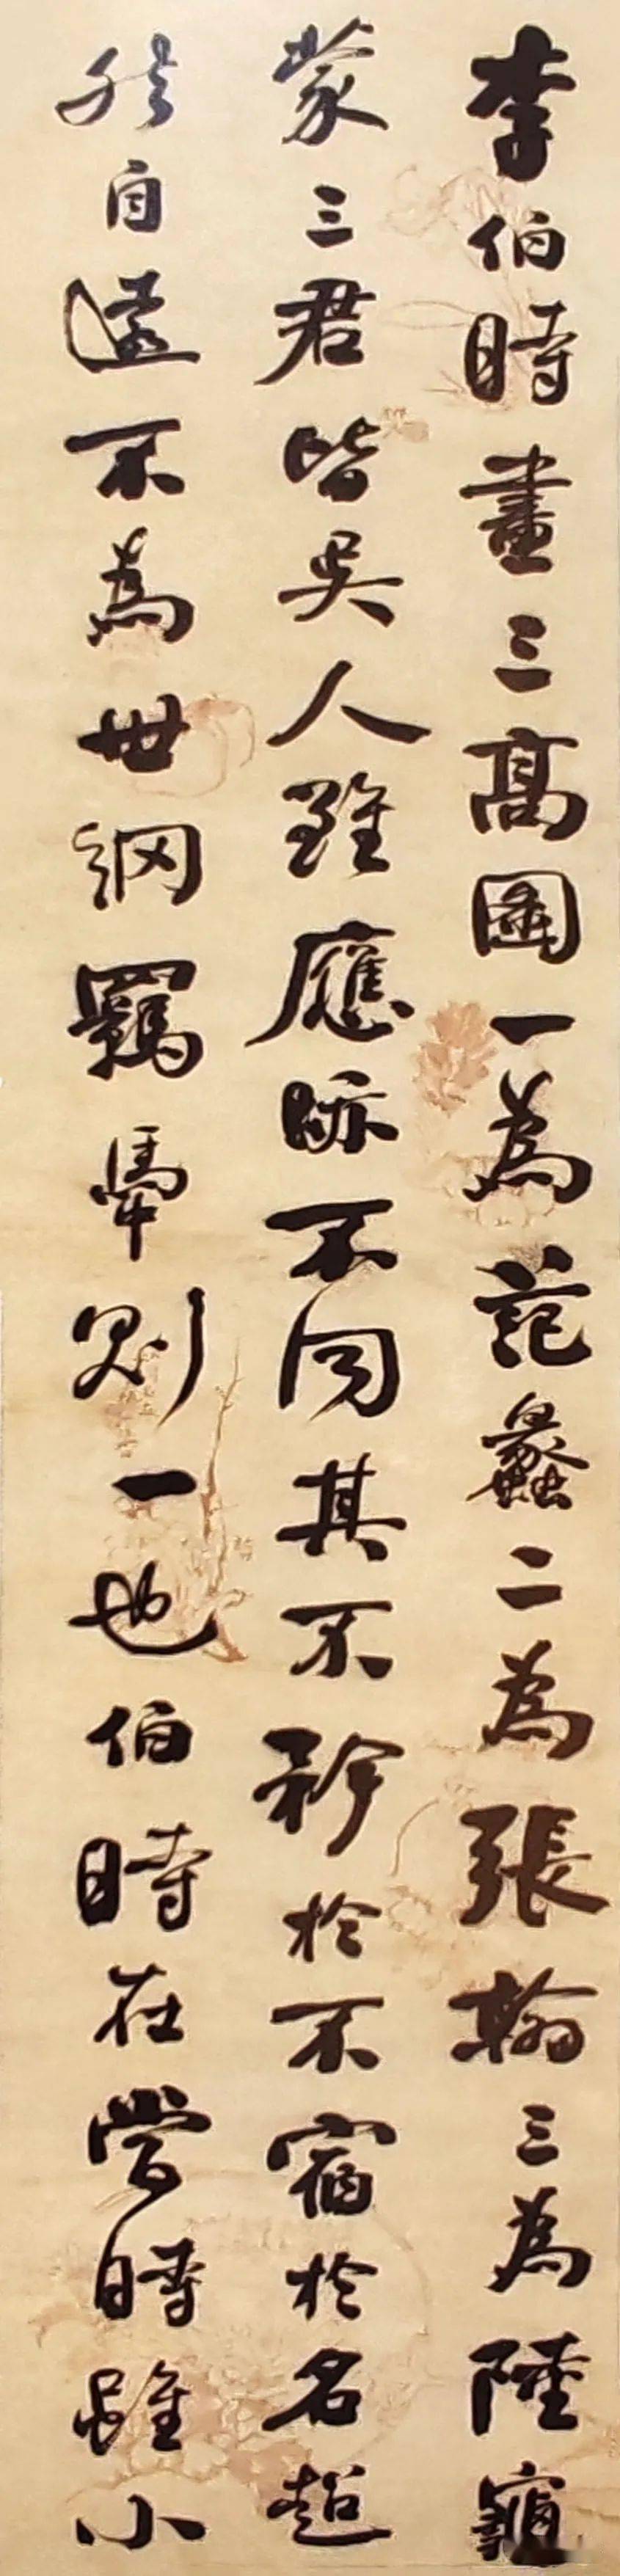 李伯時畫三高圖一為范蠡二為張翰三為陸龜
蒙三君皆吳人雖應跡不同其不矜於不宿於名超
然自遠不為世網羈牽則一也伯時在當時雖小